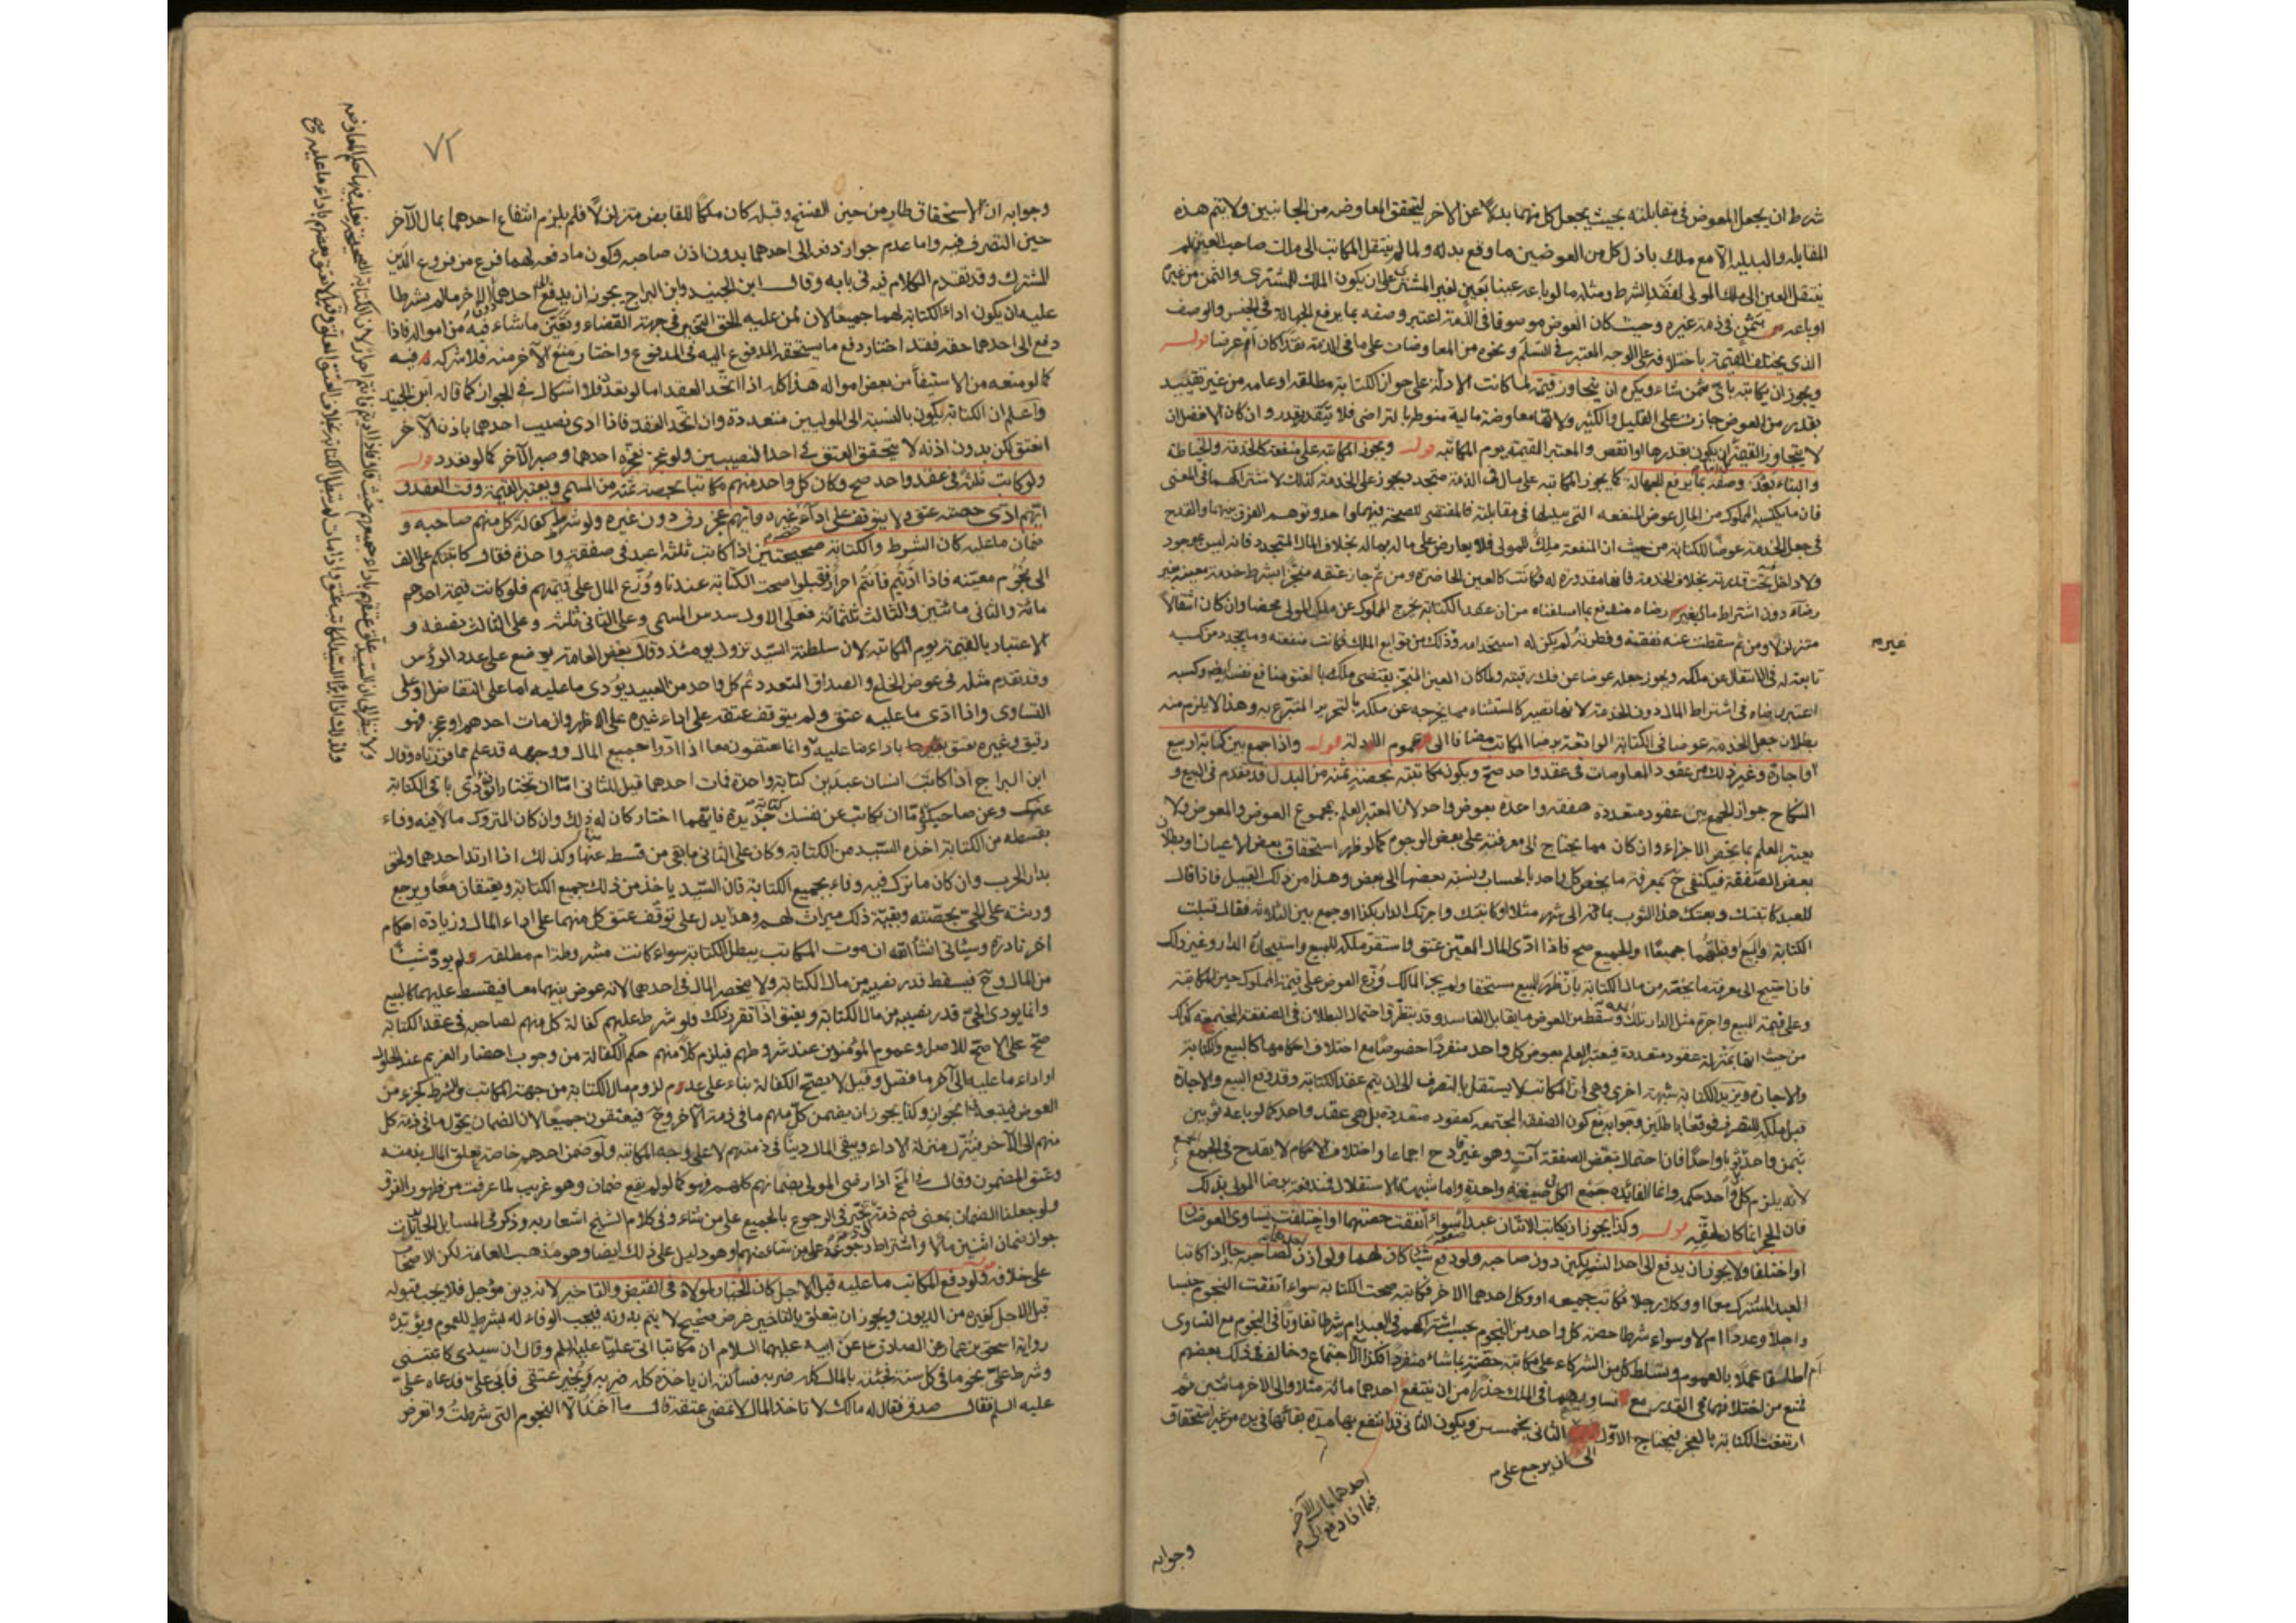 شرط ان يجعل المعوض في مقابلته بحيث يجعل كل منهما بدلاً عن الاخر ليتحقق المعاوضه من الجانبين ولا يتم هذه
المقابله والبدليه الا مع ملك باذل كل من العوضين ما وقع بدله ولما لم ينتقل المكاتب الى ملك صاحب العين لم
ينتقل العين الى ملك المولى لفقد الشرط ومثله ما لو باعه عينا بعين لغير المشترى على ان يكون الملك للمشترى والثمن من غيره
او باعه بثمن في ذمة غيره وحيث كان العوض موصوفا في الذمة اعتبر وصفه بما يرفع الجهالة في الجنس والوصف
الذى يختلف القيمة باختلافه على الوجه المعتبر في السلم ونحوه من المعاوضات على ما في الذمة نقدا كان ام عرضا قوله
ويجوز ان يكاتبه باى ثمن شاء ويكره ان يتجاوز قيمته لما كانت الادلة على جواز الكتابة مطلقه او عامه من غير تقييد
بقدر من العوض جازت على القليل والكثير ولانها معاوضة مالية منوطة بالتراضى فلا يتقدر بقدر وان كان الافضل ان
لا يتجاوز القيمة بان يكون بقدرها او انقص والمعتبر القيمة يوم المكاتبه قوله ويجوز المكاتبه على منفعة كالخدمة والخياطة
والبناء بعد وصفه بما يرفع الجهالة كما يجوز المكاتبه على مال في الذمة متجدد يجوز على الخدمة كذلك لاشتراكهما في المعنى
فان ما يكتسبه المملوك من المال عوض المنفعه التى يبذلها في مقابلته فالمقتضى للصحة فيهما واحد وتوهم الفرق بينهما والقدح
في جعل الخدمة عوضا للكتابة من حيث ان المنفعة ملك للمولى فلا يعارض على ماله بماله بخلاف المال المتجدد فانه ليس بموجود
ولا داخل تحت قدرته بخلاف الخدمة فانها مقدورة له فكانت كالعين الحاضرة ومن ثم جاز عتقه منجزا بشرط خدمة معينة بغير
رضاه دون اشتراط مال بغير رضاه مندفع بما اسلفناه من ان عقد الكتابة يخرج المملوك عن ملك المولى محضا وان كان انتقالا
متزلزلا ومن ثم سقطت عنه نفقته وفطرته ولم يكن له استخدامه وذلك من توابع الملك فكانت منفعته وما يتجدد من كسبه
غير م
تابعة له في الانتقال عن ملكه ويجوز جعله عوضا عن فك رقبته ولما كان العين المنجز يقتضى ملك بالعتق منافع نفسه ايضا وكسبه
اعتبر رضاه في اشتراط المال دون الخدمة لانها تصير كالمستثناه مما يخرجه عن ملكه بالتحرير المتبرع به وهذا لا يلزم منه
بطلان جعل الخدمة عوضا في الكتابة الواقعة برضا المكاتب مضافا الى عموم الادلة قوله واذا جمع بين كتابة وبيع
او اجارة وغير ذلك من عقود المعاوضات في عقد واحد صح ويكون مكاتبته بحصته ثمنه من البدل قد تقدم في البيع و
النكاح جواز الجمع بين عقود متعددة صفقه واحدة بعوض واحد لان المعتبر العلم بمجموع العوض والمعوض ولا
يعتبر العلم بما يخص الاجزاء وان كان مما يحتاج الى معرفته على بعض الوجوه كما لو ظهر استحقاق بعض الاعيان او بطلان
بعض الصفقة فيكفى ح بمعرفة ما يخص كل واحد بالحساب ونسبة بعضها الى بعض وهذا من ذلك القبيل فاذا قال
للعبد كاتبتك وبعتك هذا الثوب بمائة الى شهر مثلا او كاتبتك واجرتك الدار بكذا او جمع بين الثلاثه فقال قبلت
الكتابة والبيع او قبلتهما جميعا او الجميع صح فاذا ادى المال المعين عتق واستقر ملكه للمبيع واستيجاره الدار وغير ذلك
فان احتيج الى معرفة ما يخصه من مال الكتابة بان ظهر المبيع مستحقا ولم يجز المالك وزع العوض على قيمة المملوك حين المكاتبة
وعلى قيمة المبيع واجرة مثل الدار تلك المدة وسقط من العوض ما يقابل الفاسد وقد يتطرق احتمال البطلان في الصفقة المجتمعه كذلك
من حيث انها بمنزلة عقود متعددة فيعتبر العلم بعوض كل واحد منفردا خصوصا مع اختلاف احكامها كالبيع والكتابة
والاجارة ويزيد الكتابة شبهة اخرى وهى ان المكاتب لا يستقل بالتصرف الى ان يتم عقد الكتابة وقد وقع البيع والاجارة
قبل ملكه للتصرف فوقعا باطلين وجوابه منع كون الصفقه المجتمعه كعقود متعددة بل هى عقد واحد كما لو باعه ثوبين
بثمن واحد او ثوبا واحدا فان احتمال تبعض الصفقة آت وهو غير قادح اجماعا واختلاف الاحكام لا يقدح في الجمع
لانه يلزم كل واحد حكمه وانما الفائدة جمع الكل في صيغة واحدة واما شبهة الاستقلال فمندفعة برضا المولى بذلك
فان الحجر انما كان لحقه قوله وكذا يجوز ان يكاتب الاثنان عبدا سواء اتفقت حصتهما او اختلفت تساوى العوضان
او اختلفا ولا يجوز ان يدفع الى احد الشريكين دون صاحبه ولو دفع شيئا كان لهما ولو اذن لصاحبه جاز اذا كاتبا
العبد المشترك معا او وكلا رجلا فكاتب جميعه او وكل احدهما الاخر فكاتبه صحت الكتابة سواء اتفقت النجوم جنسا
واجلا وعددا ام لا وسواء شرطا حصة كل واحد من النجوم بحسب اشتراكهم في العبد ام شرطا تفاوتا في النجوم مع التساوى
ام اطلقا عملا بالعموم وتسلط كل من الشركاء على مكاتبة حصته بما شاء منفردا فكذا مع الاجتماع وخالف في ذلك بعضهم
فمنع من اختلافهما في القدر مع تساويهما في الملك حذرا من ان ينتفع احدهما مائة مثلا والى الاخر مائتين ثم
ارتفعت الكتابة بالعجز فيحتاج الاول الثانى بخمسين ويكون الثانى قد انتفع بها مدة بقائها في يده من غير استحقاق
الى ان يرجع على م
احدهما بمال الآخر
فيما اذا دفع الى م
وجوابه
٧٢
وجوابه ان الاستحقاق طار من حين الفسخ وقبله كان ملكا للقابض متزلزلا فلم يلزم انتفاع احدهما بمال الآخر
حين التصرف فيه واما عدم جواز دفعه الى احدهما بدون اذن صاحبه وكون ما دفعه لهما فرع من فروع الدين
المشترك وقد تقدم الكلام فيه في بابه وقال ابن الجنيد وابن البراج يجوز ان يدفع الى احدهما دون الاخر ما لم يشرطا
عليه ان يكون اداء الكتابة لهما جميعا لان لمن عليه الحق التخير في جهة القضاء وتعيين ما شاء فيه من امواله فاذا
دفع الى احدهما حقه فقد اختار دفع ما يستحقه المدفوع اليه في المدفوع واختار منع الآخر منه فلا شركة فيه
كما لو منعه من الاستيفاء من بعض امواله هذا كله اذا اتحد العقد اما لو تعدد فلا اشكال في الجواز كما قاله ابن الجنيد
واعلم ان الكتابة يكون بالنسبة الى الموليين متعددة وان اتحد العقد فاذا ادى نصيب احدهما باذن الآخر
انعتق لكن بدون اذنه لا يتحقق العتق في احد النصيبين ولو عجز فعجزه احدهما وصبر الآخر كما لو تعدد قوله
ولو كاتب ثلثة في عقد واحد صح وكان كل واحد منهم مكاتبا بحصة ثمنه من المسمى ويعتبر القيمة وقت العقد و
ايهم ادى حصته عتق ولا يتوقف على اداء غيره وايهم عجز رق دون غيره ولو شرط كفالة كل منهم صاحبه و
ضمان ما عليه كان الشرط والكتابة صحيحين اذا كاتب ثلثة اعبد في صفقة واحدة فقال كاتبتكم على الف
الى نجوم معينه فاذا اديتم فانتم احرار فقبلوا صحت الكتابة عندنا ووزع المال على قيمتهم فلو كانت قيمة احدهم
مائة والثانى مائتين والثالث ثلثمائة فعلى الاول سدس المسمى وعلى الثانى ثلثه وعلى الثالث نصفه و
الاعتبار بالقيمة يوم المكاتبه لان سلطنة السيد تزول يومئذ وقال بعض العامة يوضع على عدد الرؤس
وقد تقدم مثله في عوض الخلع والصداق المتعدد ثم كل واحد من العبيد يؤدى ما عليه اما على التفاضل او على
التساوى واذا ادى ما عليه عتق ولم يتوقف عتقه على اداء غيره على الاظهر وان مات احدهم او عجز فهو
رقيق وغيره يعتق باداء ما عليه وانما يعتقون معا اذا ادوا جميع المال ووجهه قد علم مما قررناه وقال
ابن البراج اذا كاتب انسان عبدين كتابة واحدة فمات احدهما قيل للثانى اما ان تختار ان تؤدى باقى الكتابة
عنك وعن صاحبك واما ان تكاتب عن نفسك كتابة جديدة فايهما اختار كان له ذلك وان كان المتروك مالا فيه وفاء
بقسطه من الكتابة اخذه السيد من الكتابة وكان على الثانى ما بقى من قسطه عنها وكذلك اذا ارتد احدهما ولحق
بدار الحرب وان كان ما ترك فيه وفاء بجميع الكتابة فان السيد ياخذ من ذلك جميع الكتابة ويعتقان معا ويرجع
ورثته على الحى بحصته وبقية ذلك ميراث لهم وهذا يدل على توقف عتق كل منهما على اداء المال وزيادة احكام
اخر نادرة وسياتى انشاء الله ان موت المكاتب يبطل الكتابة سواء كانت مشروطة ام مطلقه ولم يود شيئا
من المال وح فيسقط قدر نصيبه من مال الكتابة ولا ينحصر المال في احدهما لانه عوض بينهما معا فيقسط عليهما كالبيع
وانما يودى الحى قدر نصيبه من مال الكتابة ويعتق اذا تقرر ذلك فلو شرط عليهم كفالة كل منهم لصاحبه في عقد الكتابة
صح على الاصح للاصل وعموم المؤمنون عند شروطهم فيلزم كلا منهم حكم الكفالة من وجوب احضار الغريم عند الحلول
او اداء ما عليه الى آخر ما فصل وقيل لا يصح الكفالة بناء على عدم لزوم مال الكتابة من جهة المكاتب والشرط كجزء من
العوض فيتبعه في الجواز وكذا يجوز ان يضمن كل منهم ما في ذمة الآخر وح فيعتقون جميعا لان الضمان يحول ما في ذمة كل
منهم الى الآخر فينزل منزلة الاداء ويبقى المال دينا في ذمتهم لا على وجه المكاتبه ولو ضمن احدهم خاصة تعلق المال بذمته
وعتق المضمون وقال الشيخ اذا رضى المولى بضمانهم كلهم فهو كما لو لم يقع ضمان وهو غريب لما عرفت من ظهور الفرق
ولو جعلنا الضمان بمعنى ضم ذمة تخير في الرجوع بالجميع على من شاء وفي كلام الشيخ اشعار به وذكر في المسايل الحائريات
جواز ضمان اثنين مالا واشتراط رجوعه على من شاء منهما وهو دليل على ذلك ايضا وهو مذهب العامة لكن الاصحاب
على خلافه قوله ولو دفع المكاتب ما عليه قبل الاجل كان الخيار لمولاه في القبض والتاخير لانه دين مؤجل فلا يجب قبوله
قبل الاجل كغيره من الديون ويجوز ان يتعلق بالتاخير غرض صحيح لا يتم بدونه فيجب الوفاء له بشرطه للعموم ويؤيده
رواية اسحق بن عمار عن الصادق عن ابيه عليهما السلام ان مكاتبا اتى عليا عليه السلم وقال ان سيدى كاتبنى
وشرط على نجوما في كل سنة فجئته بالمال كله ضربه فسألته ان ياخذه كله ضربه ويجيز عتقى فابى على فدعاه على
عليه السلم فقال صدق فقال له مالك لا تاخذ المال وتمضى عتقه قال ما آخذ الا النجوم التى شرطت واتعرض